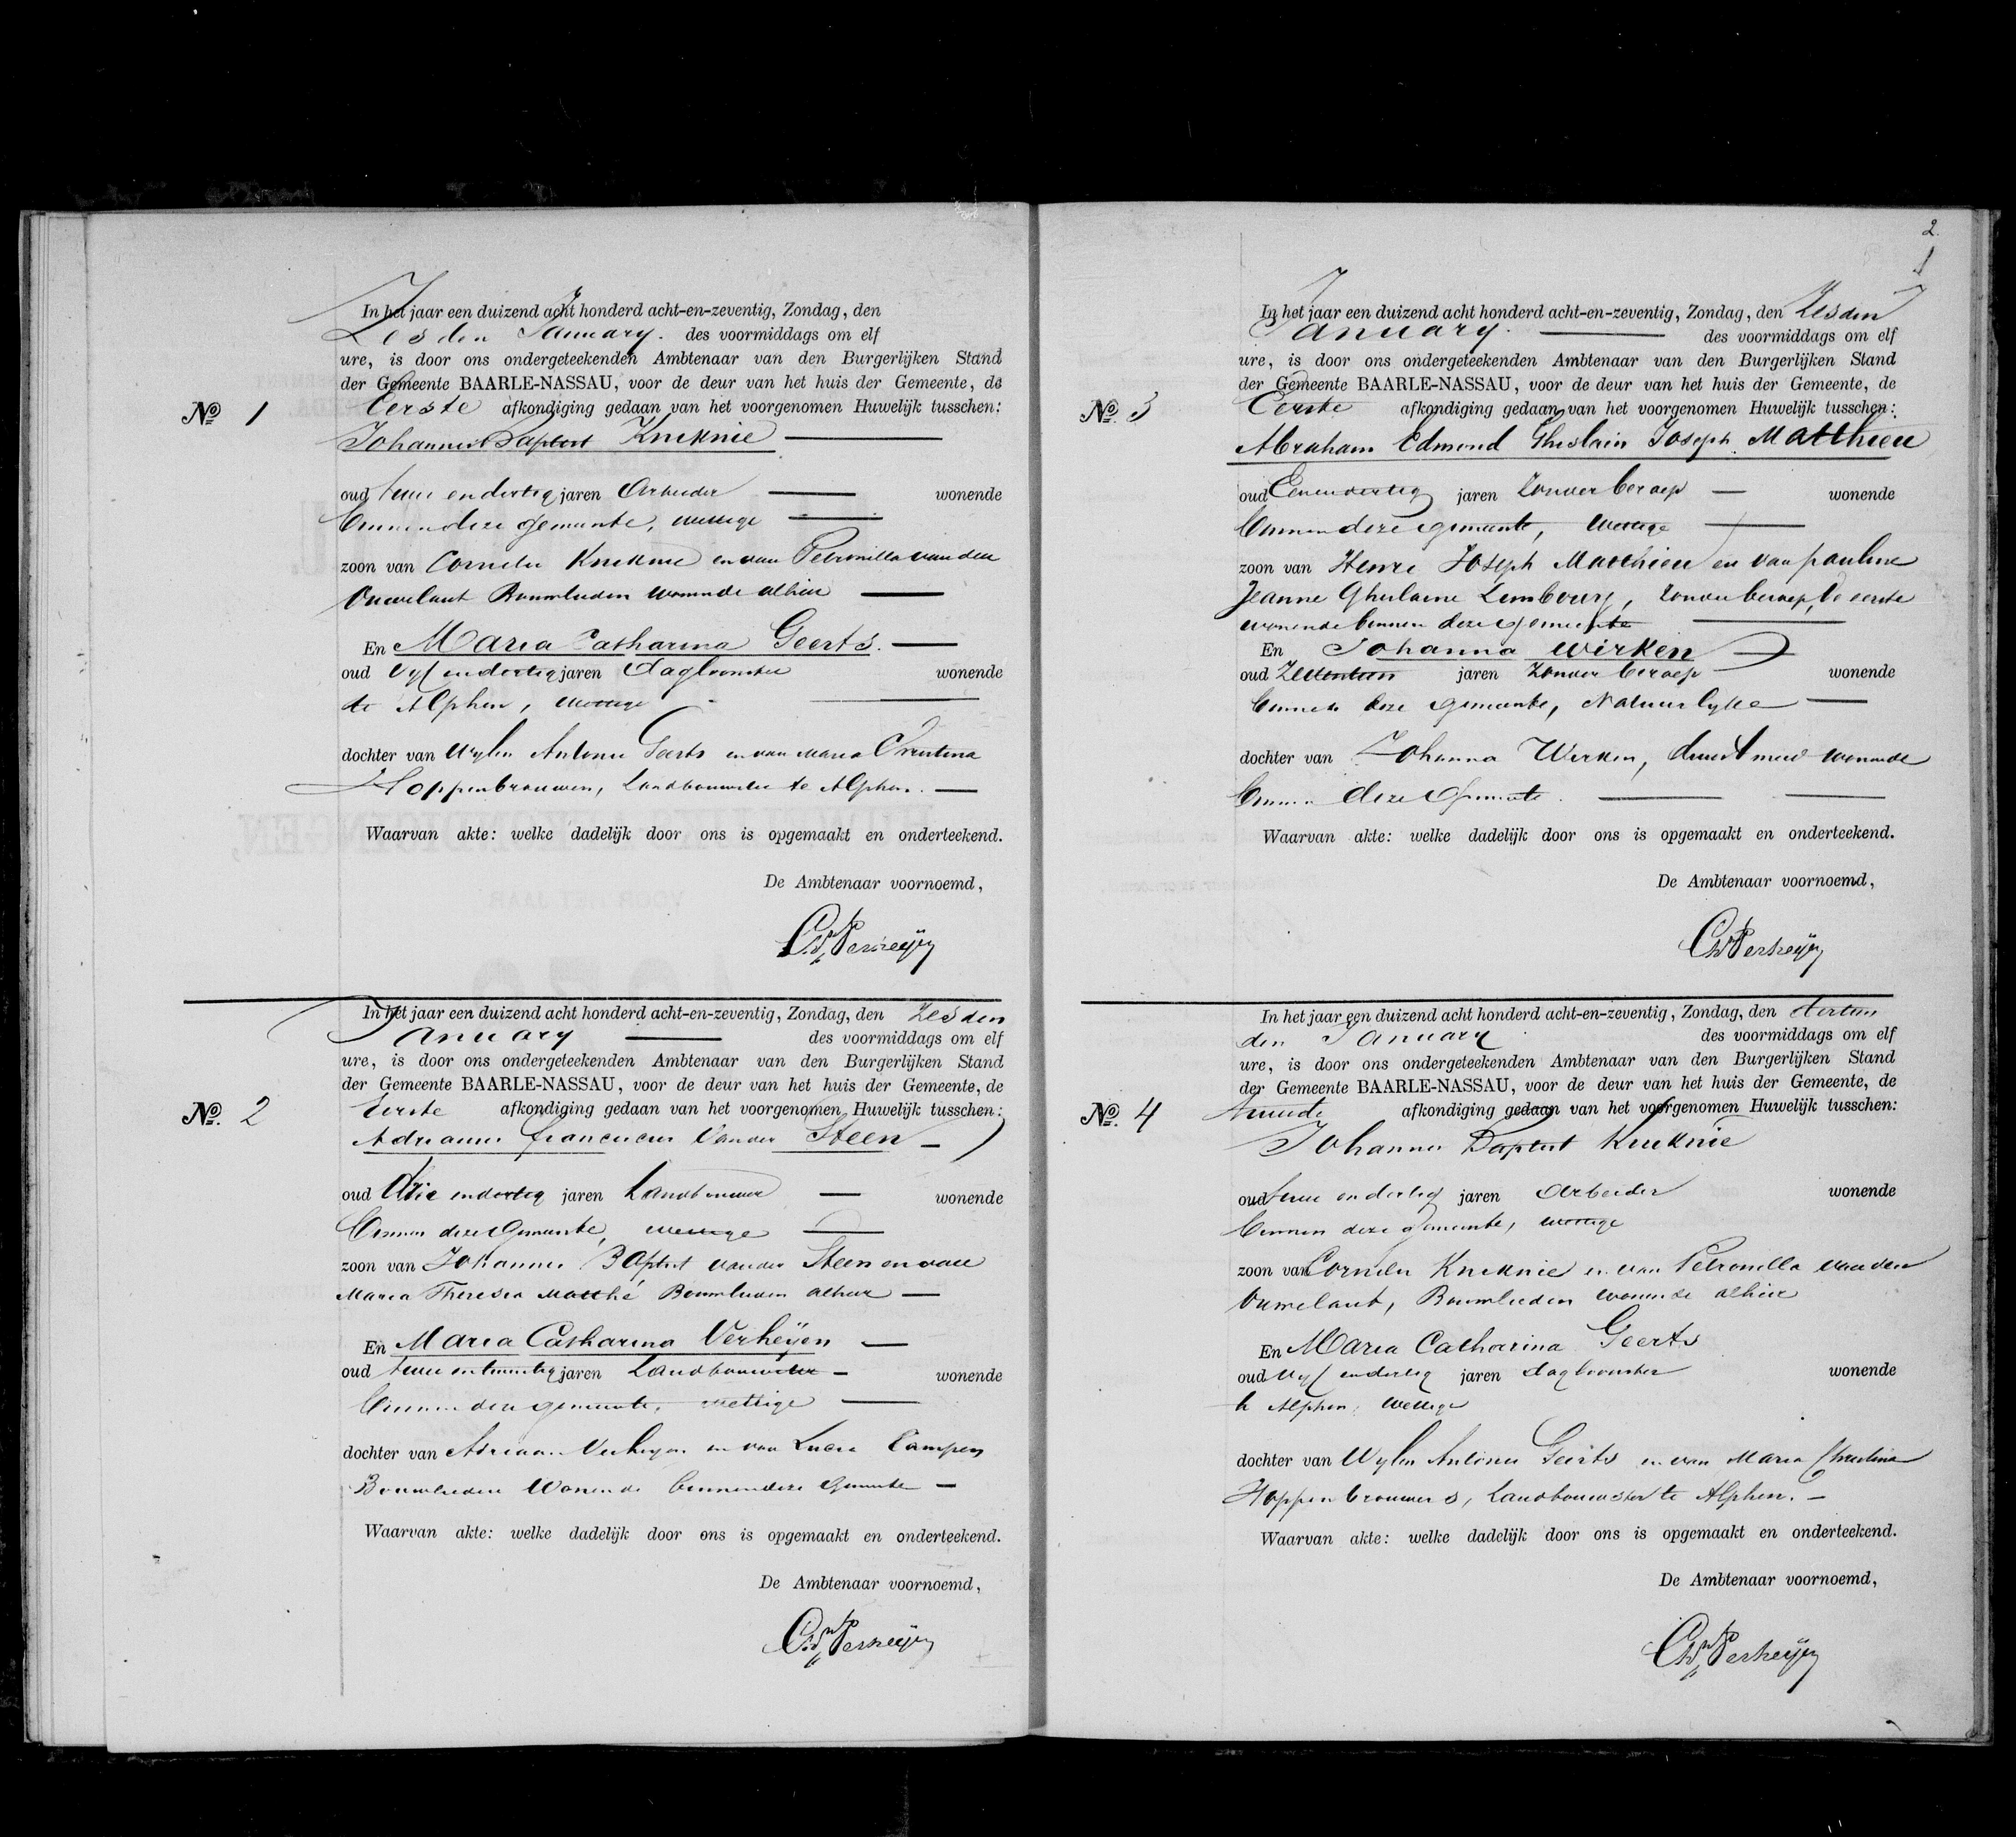 In het jaar een duizend acht honderd acht-en-zeventig, Zondag, den
Zesden January. des voormiddags om elf
ure, is door ons ondergeteekenden Ambtenaar van den Burgerlijken Stand
der Gemeente BAARLE-NASSAU, voor de deur van het huis der Gemeente, de
No 1 Eerste afkondiging gedaan van het voorgenomen Huwelijk tusschen:
Johannes Baptist Kneknie
oud twee en dertig jaren Arbeider wonende
binnen deze gemeente, wettige
zoon van Cornelis Kneknie en van Petronilla van den
Ouwelant Bouwlieden wonende alhier
En Maria Catharina Geerts.
oud vyf en dertig jaren dagloonster wonende
te Alphen, wettige
dochter van wylen Antonie Geerts en van Maria Christina
Hoppenbrouwers, Landbouwster te Alphen.
Waarvan akte: welke dadelijk door ons is opgemaakt en onderteekend.
De Ambtenaar voornoemd,
Verheijen
In het jaar een duizend acht honderd acht-en-zeventig, Zondag, den Zesden
January des voormiddags om elf
ure, is door ons ondergeteekenden Ambtenaar van den Burgerlijken Stand
der Gemeente BAARLE-NASSAU, voor de deur van het huis der Gemeente, de
No. 2 Eerste afkondiging gedaan van het voorgenomen Huwelijk tusschen:
Adrianus Franciscus van der Steen
oud drie en dertig jaren Landbouwer wonende
binnen deze Gemeente, wettige
zoon van Johannes Baptist van der Steen en van
Maria Theresia Matthé Bouwlieden alhier
En Maria Catharina Verheijen
oud twee en twintig jaren Landbouwster wonende
binnen deze gemeente, wettige
dochter van Adriaan Verheyen en van Lucia Campen
Bouwlieden wonende binnen deze Gemeente
Waarvan akte: welke dadelijk door ons is opgemaakt en onderteekend.
De Ambtenaar voornoemd,
Verheijen
2.
1
In het jaar een duizend acht honderd acht-en-zeventig, Zondag, den Zesden
January. des voormiddags om elf
ure, is door ons ondergeteekenden Ambtenaar van den Burgerlijken Stand
der Gemeente BAARLE-NASSAU, voor de deur van het huis der Gemeente, de
No. 3 Eerste afkondiging gedaan van het voorgenomen Huwelijk tusschen:
Abraham Edmond Ghislain Joseph Matthieu
oud Eenendertig jaren Zonder beroep wonende
binnen deze gemeente, wettige
zoon van Henri Joseph Matthieu en van pauline
Jeanne Ghislaine Limbourg, zonder beroep, de eerste
wonende binnen deze gemeente
En Johanna Wirken
oud Zeventien jaren Zonder beroep wonende
binnen deze gemeente, Natuurlyke
dochter van Johanna Wirken, dienstmeid wonende
binnen deze Gemeente.
Waarvan akte: welke dadelijk door ons is opgemaakt en onderteekend.
De Ambtenaar voornoemd,
Verheijen
In het jaar een duizend acht honderd acht-en-zeventig, Zondag, den dertien
den January des voormiddags om elf
ure, is door ons ondergeteekenden Ambtenaar van den Burgerlijken Stand
der Gemeente BAARLE-NASSAU, voor de deur van het huis der Gemeente, de
No. 4 tweede afkondiging gedaan van het voorgenomen Huwelijk tusschen:
Johannes Baptist Kneknie
oud twee en dertig jaren Arbeider wonende
binnen deze gemeente, wettige
zoon van Cornelis Kneknie en van Petronella van den
Ouwelant, Bouwlieden wonende alhier
En Maria Catharina Geerts
oud vyf en dertig jaren dagloonster wonende
te Alphen, wettige
dochter van wylen Antonie Geerts en van Maria Christina
Hoppenbrouwers, Landbouwster te Alphen.
Waarvan akte: welke dadelijk door ons is opgemaakt en onderteekend.
De Ambtenaar voornoemd,
Verheijen